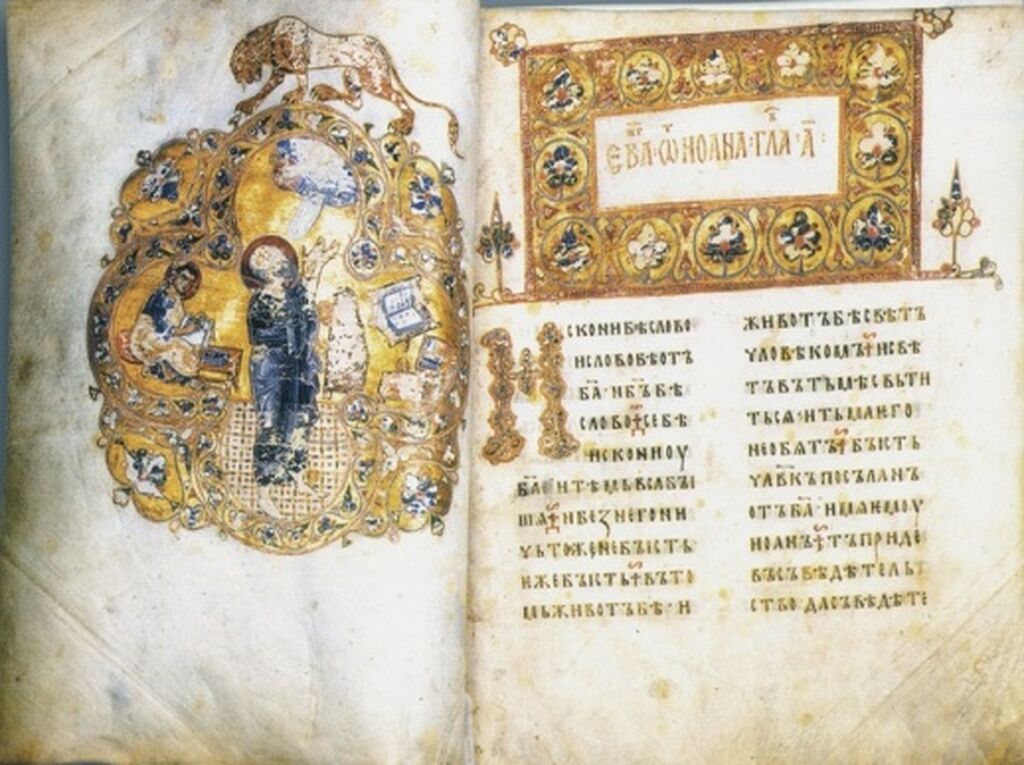 ЕВА·Ѿ ИОАНА·ГЛА·А҃:
ИСКОНИ БѢ СЛОВО
И СЛОВО БѢ ОТЪ
Б҃А· И Б҃Ъ БѢ
СЛОВО· СЕ БѢ
ИСКОНИ ОУ
Б҃А И ТѢМЬ ВСА БЫ
ШѦ· И БЕЗ НЕГО НИ
ЧЬТОЖЕ НЕ БЫСТЬ
ЕЖЕ БЫСТЬ· ВЪ ТО
МЬ ЖИВОТЪ БѢ· И
ЖИВОТЪ БѢ СВѢТЪ
ЧЛОВѢКОМЪ· И СВѢ
ТЪ ВЪ ТЬМѢ СВЬТИ
ТЬСѦ· И ТЬМА ѤГО
НЕ ОБѦТЪ· БЫСТЬ
ЧЛ҃ВКЪ ПОСЪЛАНЪ
ОТЪ Б҃А· ИМѦ ѤМОУ
ИОАНЪ· ТЪ ПРИДЕ
ВЪ СЪВѢДѢТЕЛЬ
СТВО· ДА СЪВѢДѢТЕ